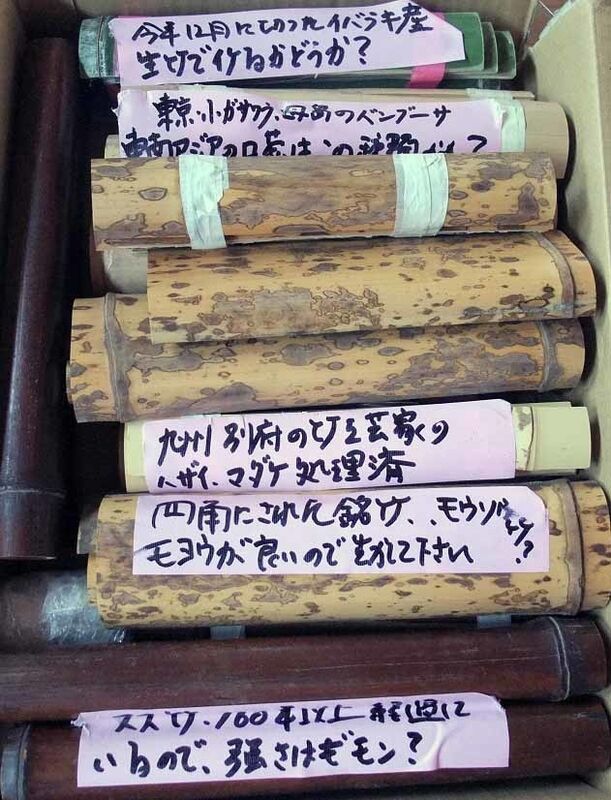 今年12月にとったイバラキ産
生竹でイケるかどうか？
東京・小ガサワラ・母島のバンブーサ
東南アジアの口琴はこの種類
九州別府の竹工芸家の
ハザイ、マダケ処理済
四角にされた銘竹、、モウソウ竹？
モヨウが良いので生かして下さい
スス竹、100年以上経過して
いるので、強さはギモン？